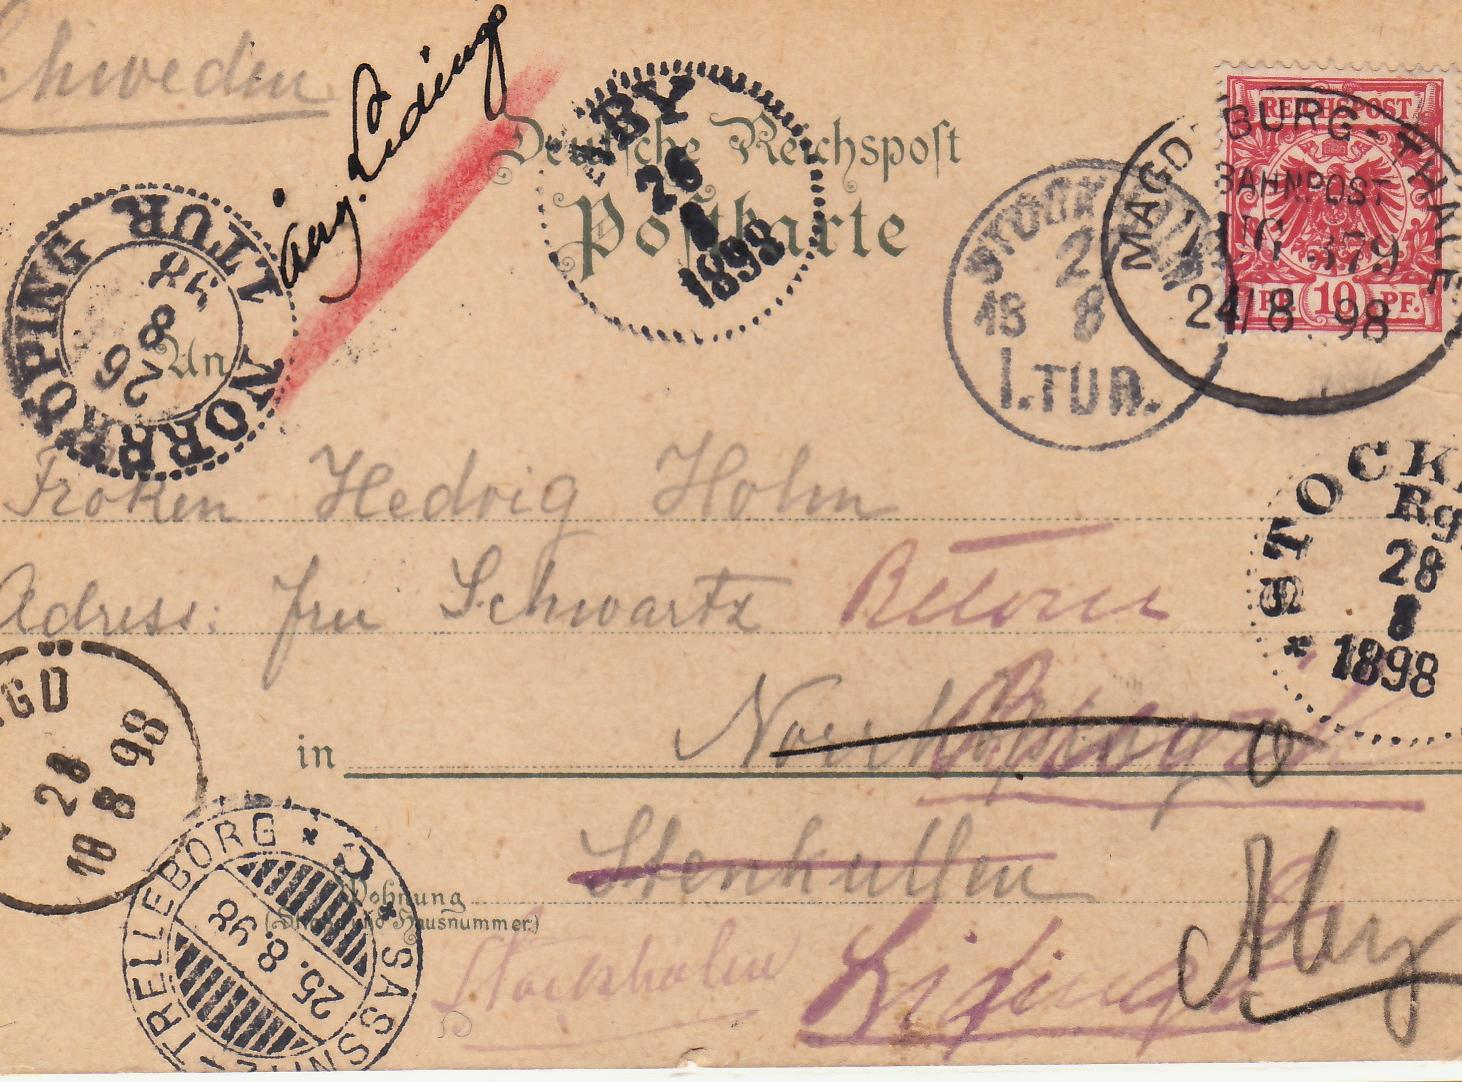 Schweden
avg. Lidingö
Deutsche Reichspost
Postkarte
An
REICHSPOST
10 PF.
MAGDEBURG-THALE
BAHNPOST
ZUG 379
24/8 98
ÅBY
26
8
1898
STOCKHOLM
2
18 8
1.TUR.
NORRKÖPING 1 TUR
26
8
98
Fröken Hedvig Holm
Adress: fru Schwartz
Retour
in Norrköping
STOCK
Rg
28
8
1898
GÖ
28
18 8 98
Stenkullen
Wohnung
(Straße und Hausnummer)
Stockholm
Lidingö
Aby
SASSNITZ-TRELLEBORG * C *
25.8.98